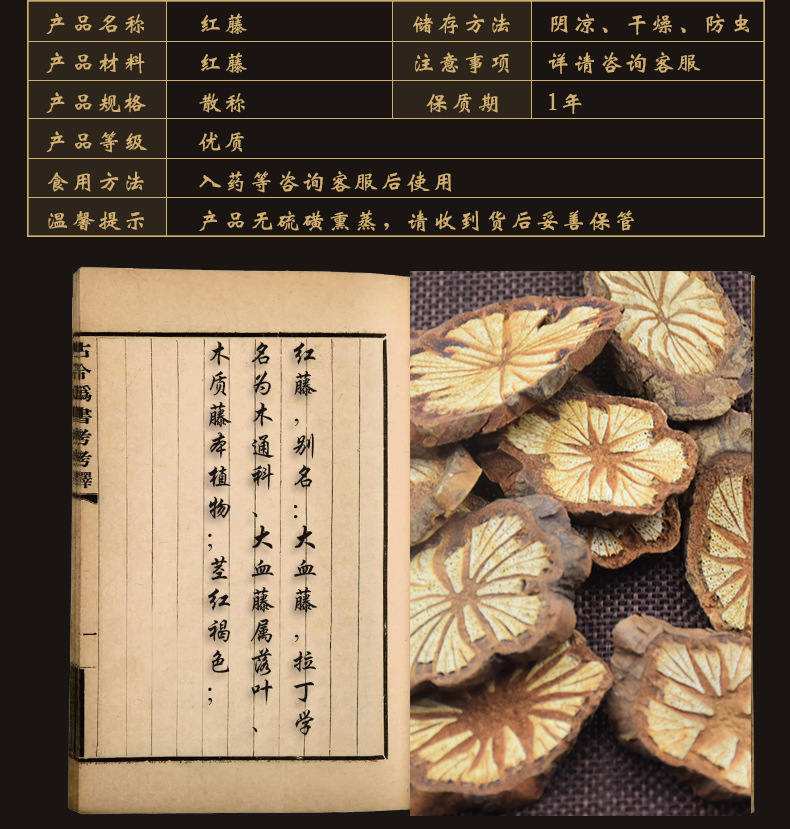 产品名称 红藤 储存方法 阴凉、干燥、防虫
产品材料 红藤 注意事项 详请咨询客服
产品规格 散称 保质期 1年
产品等级 优质
食用方法 入药等咨询客服后使用
温馨提示 产品无硫磺熏蒸，请收到货后妥善保管
红藤，别名：大血藤，拉丁学
名为木通科、大血藤属落叶、
木质藤本植物；茎红褐色；
書考考釋
一